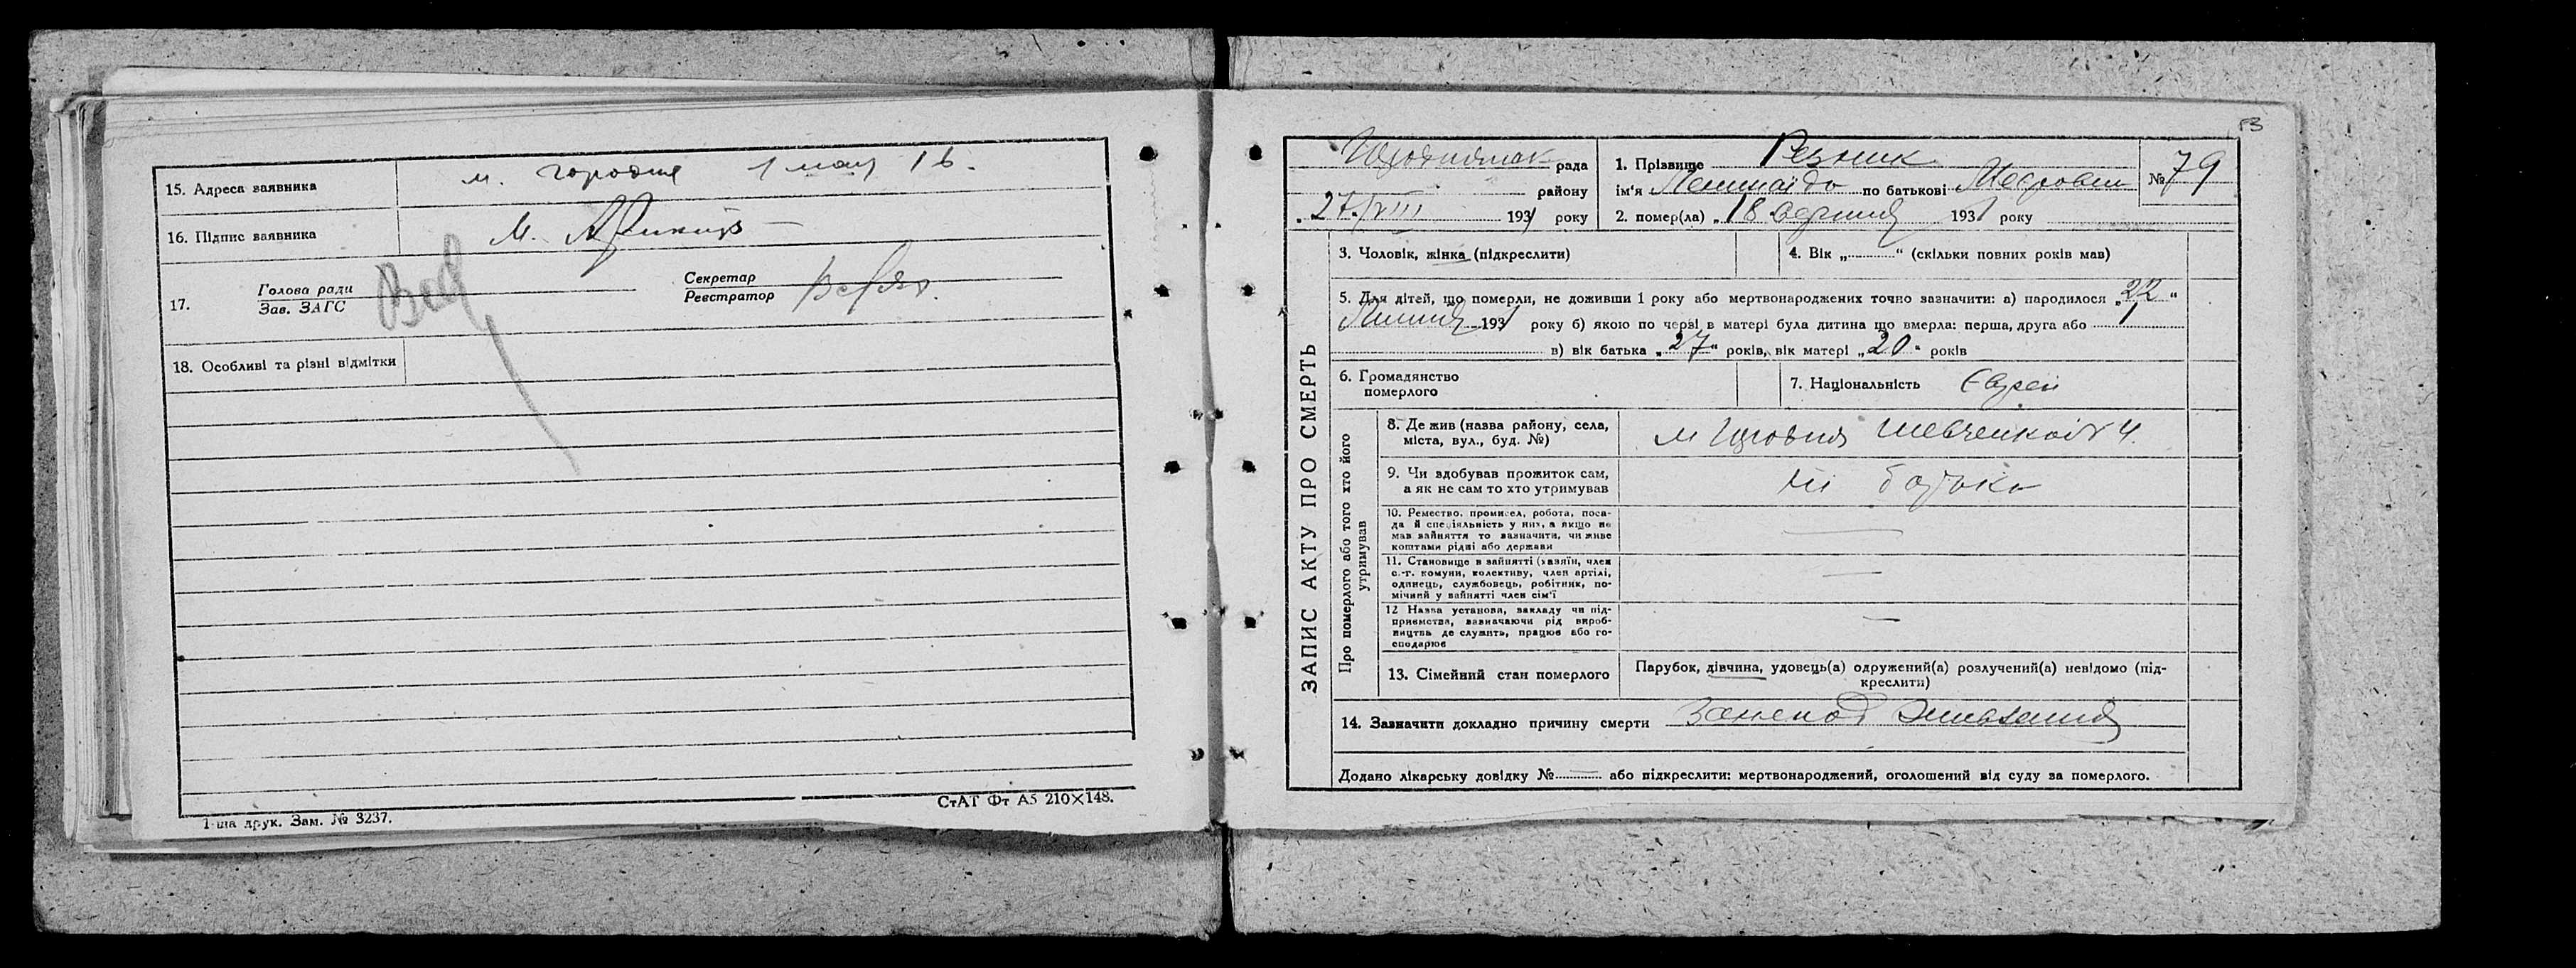 15. Адреса заявника м. Городня 1 мая 16.
16. Підпис заявника М.
17. Голова ради
Зав. ЗАГС
Секретар
Реєстратор
18. Особливі та різні відмітки
СтАТ Фт А5 210×148.
1-ша друк. Зам. № 3237.
53
рада
району
„27/VIII 1931 року
1. Прізвище Резник
ім'я по батькові
2. помер(ла) „18 серпня 1931 року
№ 79
ЗАПИС АКТУ ПРО СМЕРТЬ
3. Чоловік, жінка (підкреслити)
4. Вік „ “ (скільки повних років мав)
5. Для дітей, що померли, не доживши 1 року або мертвонароджених точно зазначити: а) народилося „22“
Липня 1931 року б) якою по черзі в матері була дитина що вмерла: перша, друга або 1
в) вік батька „27“ років, вік матері „20“ років
6. Громадянство
померлого
7. Національність Єврей
Про померлого або того хто його
утримував
8. Де жив (назва району, села,
міста, вул., буд. №)
м Городня Шевченкой 4.
9. Чи здобував прожиток сам,
а як не сам то хто утримував
ні батько
10. Ремество, промисел, робота, поса-
да й спеціяльність у них, а якщо не
мав зайняття то зазначити, чи живе
коштами рідні або держави
11. Становище в зайнятті (хазяїн, член
с.-г. комуни, колективу, член артілі,
одинець, службовець, робітник, по-
мічний у зайнятті член сім'ї
12 Назва установи, закладу чи під-
приємства, зазначаючи рід вироб-
ництва де служить, працює або го-
сподарює
13. Сімейний стан померлого
Парубок, дівчина, удовець(а) одружений(а) розлучений(а) невідомо (під-
креслити)
14. Зазначити докладно причину смерти
Додано лікарську довідку № або підкреслити: мертвонароджений, оголошений від суду за померлого.